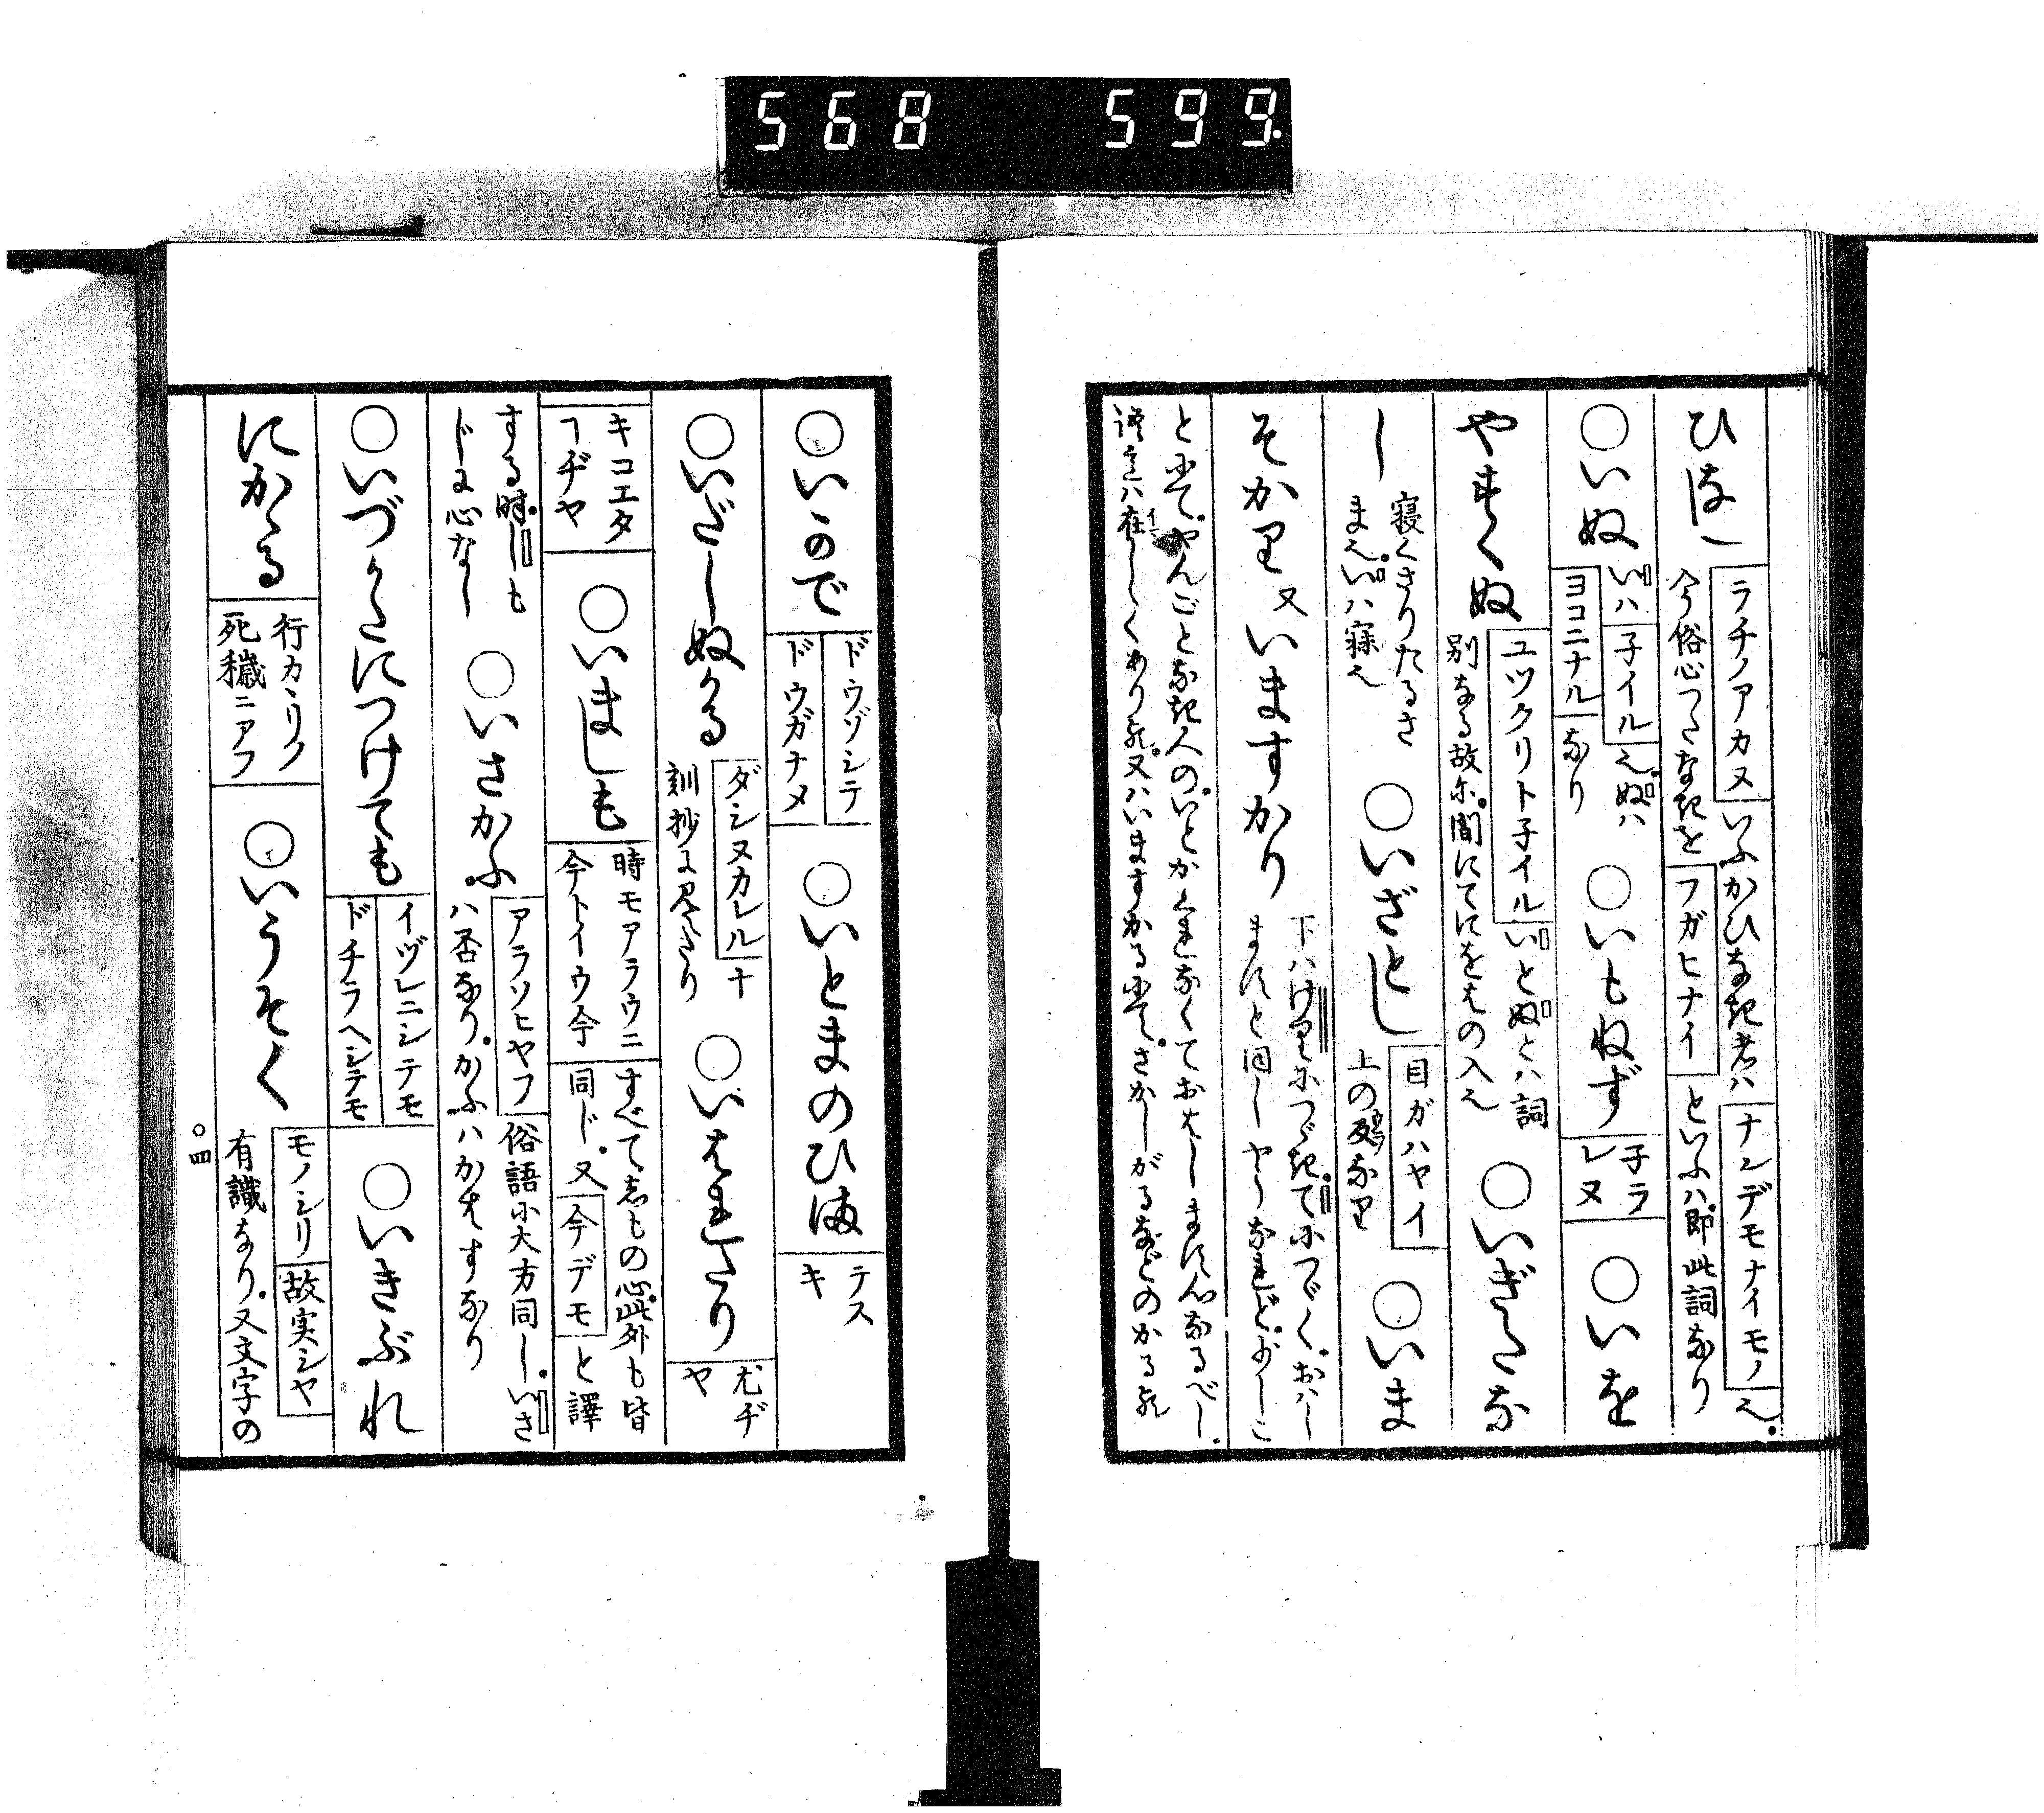 568 599
ひなし
ラチノアカヌ
いふかひなき者ハ
ナンデモナイモノ
也
今俗心つたなきを
フガヒナイ
といふハ即此詞なり
○いぬ
いハ
子イル
也ぬハ
ヨコニナル
なり
○いもねず
子ラ
レヌ
○いを
やすくぬ
ユツクリト子イル
いとぬとハ詞
別なる故に間にてにをはの入也
○いぎたな
し
寝くさりたるさ
ま也いハ寐也
○いざとし
目ガハヤイ
上の反なり
○いま
そかり
又
いますかり
下ハけりにつゞきてにつゞくおハし
ますと同し
とにて
やんごとなき人の
又ハいますかるにて
○いかで
ドウゾシテ
ドウガナメ
○いとまのひま
テス
キ
○いだしぬかる
ダシヌカレル
ナ
訓抄に見えたり
○いはれたり
尤ヂ
ヤ
キコエタ
ヿヂヤ
○いましも
時モアラウニ
今トイウ今
すべて志もの心此外も皆
同ド又
今デモ
と譯
する時しも
ドに心なし
○いさかふ
アラソヒヤフ
俗語に大方同しいさ
ハ否なりかふハかはすなり
○いづかたにつけても
イヅレニシテモ
ドチラヘシテモ
○いきぶれ
にかゝる
行カヽリノ
死穢ニアフ
○いうそく
モノシリ
故実シヤ
有識なり又文字の
○四